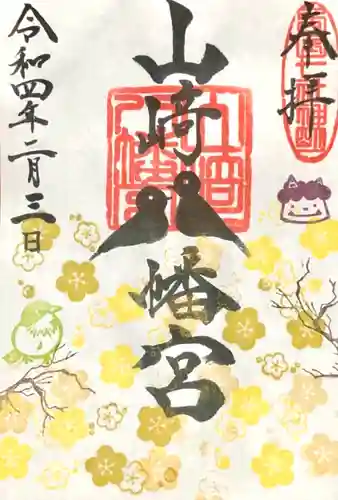 奉拝
山崎八幡宮
令和四年二月三日